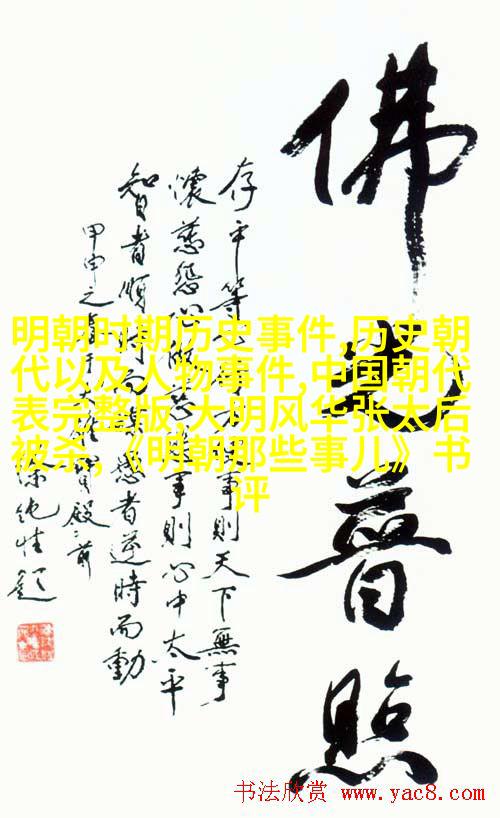 佛光普照
存平等心行方便事則天下無事
懷慈悲心做慈悲事則心中太平
智者順時而謀愚者逆時而動
甲申之春于大雄寶殿之前
明朝时期历史事件,历史朝
代以及人物事件,中国朝代
表完整版,大明风华张太后
被杀,《明朝那些事儿》书
评
书法欣赏 www.yac8.com